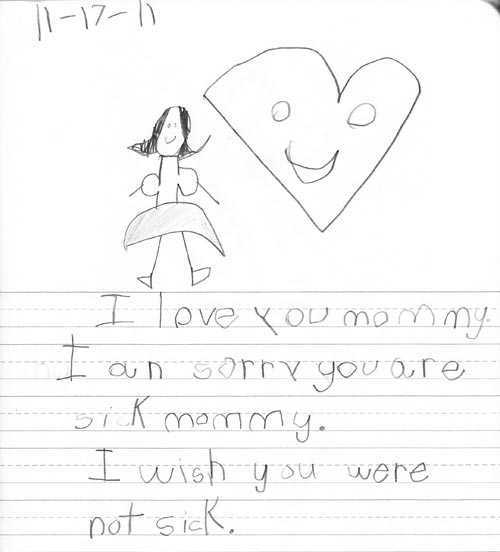 11-17-11
I love you mommy.
I an sorry you are
sick mommy.
I wish you were
not sick.